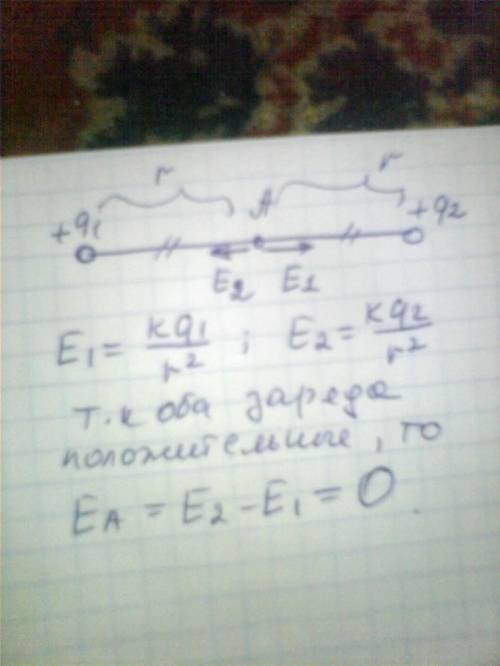 r r
+q1 A +q2
E2 E1
E1 = kq1/r² ; E2 = kq2/r²
т.к оба заряда
положительные, то
EA = E2 - E1 = 0.